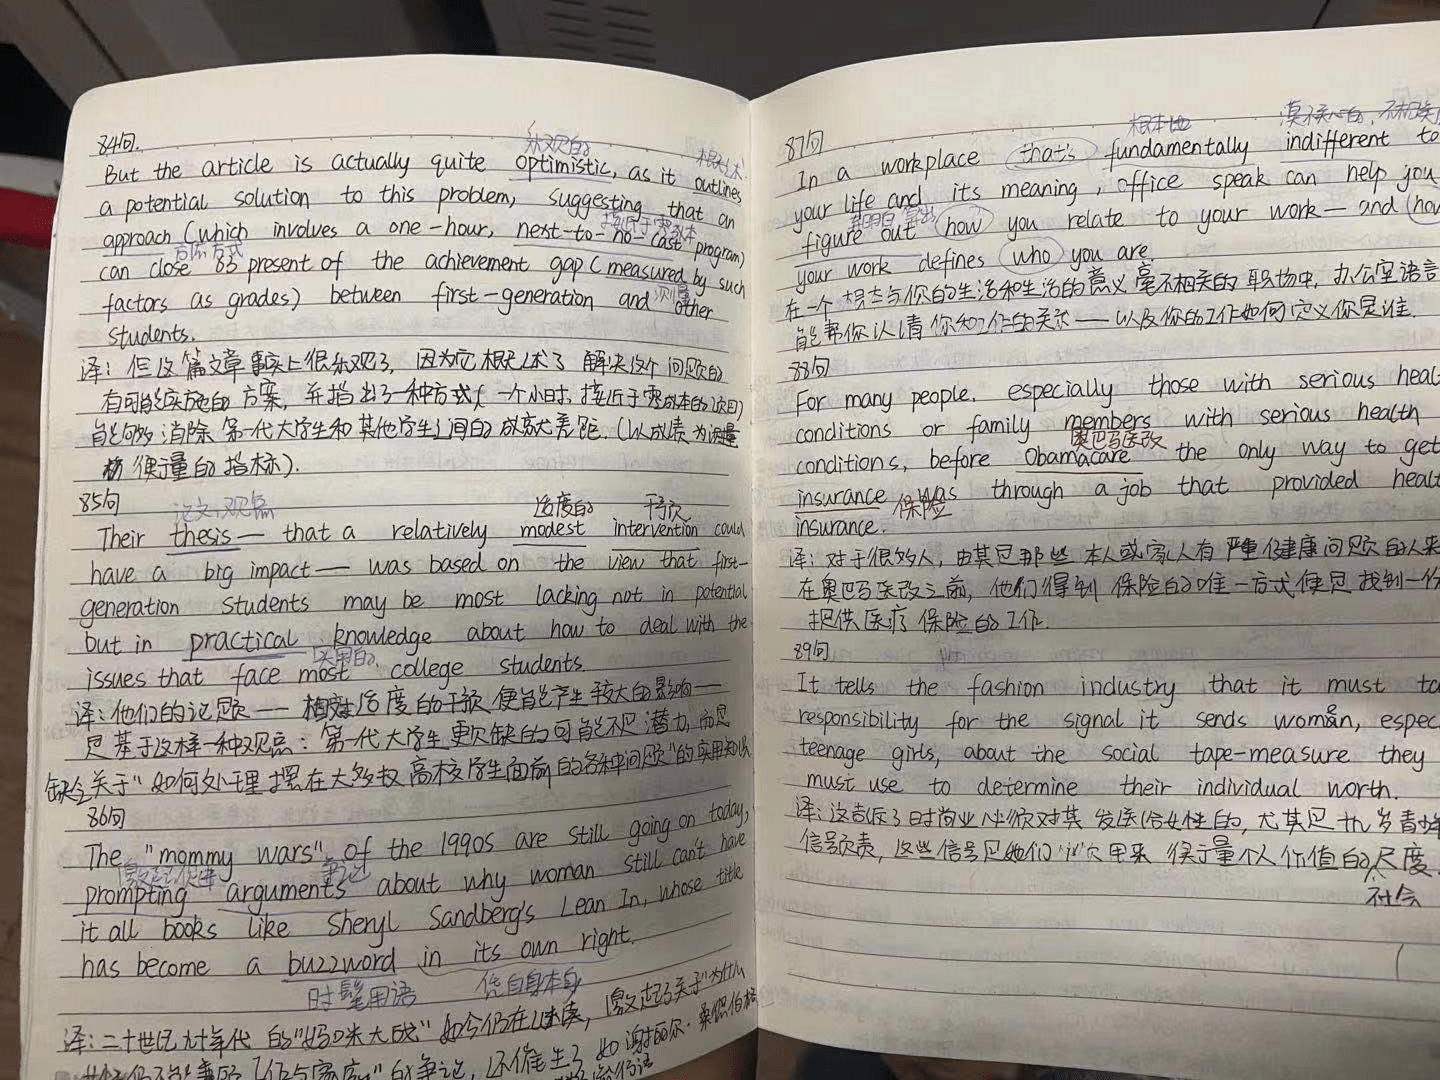 84句.
乐观的
But the article is actually quite optimistic, as it outlines
概述
a potential solution to this problem, suggesting that an
接近于零成本
approach (which involves a one-hour, next-to-no-cast program)
方法 方式
can close 63 present of the achievement gap (measured by such
测量
factors as grades) between first-generation and other
students.
译: 但这篇文章事实上很乐观了, 因为它概述了 解决这个问题的
有可能实施的方案, 并指出了一种方式( 一个小时, 接近于零成本的项目)
能够消除 第一代大学生和其他学生之间的成就差距. (以成绩为测量
衡量的指标).
85句
论文,观点 适度的 干预
Their thesis — that a relatively modest intervention could
have a big impact — was based on the view that first-
generation students may be most lacking not in potential
but in practical knowledge about how to deal with the
实用的
issues that face most college students.
译: 他们的论题 —— 相对适度的干预便能产生较大的影响 ——
是基于这样一种观点: 第一代大学生更欠缺的可能不是潜力, 而是
缺乏关于"如何处理摆在大多数高校学生面前的各种问题"的实用知识
86句
The "mommy wars" of the 1990s are still going on today,
激起,促使 争论
prompting arguments about why woman still can't have
it all books like Sheryl Sandberg's Lean In, whose title
has become a buzzword in its own right.
时髦用语 凭自身本身
译: 二十世纪九十年代 的"妈咪大战" 如今仍在继续, 激起了关于"为什么
的争论, 还催生了 如 谢丽尔·桑德伯格
87句
根本地 漠不关心的, 不相关
In a workplace that's fundamentally indifferent to
your life and its meaning, office speak can help you
弄明白
figure out how you relate to your work — and how
your work defines who you are.
在一个根本与你的生活和生活的意义毫不相关的职场中, 办公室语言
能帮你认清你和工作的关系 —— 以及你的工作如何定义你是谁.
88句
For many people, especially those with serious heal
conditions or family members with serious health
奥巴马医改
conditions, before Obamacare the only way to get
insurance was through a job that provided healt
保险
insurance.
译: 对于很多人, 尤其是那些 本人或家人有 严重健康问题的人来
在奥巴马医改之前, 他们得到 保险的唯一方式便是找到一份
提供医疗保险的工作.
89句
It tells the fashion industry that it must ta
responsibility for the signal it sends woman, espec
e
teenage girls, about the social tape-measure they
must use to determine their individual worth.
译: 这告诉了时尚业必须对其 发送给女性的, 尤其是十几岁青少年
信号负责, 这些信号是她们必须用来 衡量个人价值的尺度.
社会